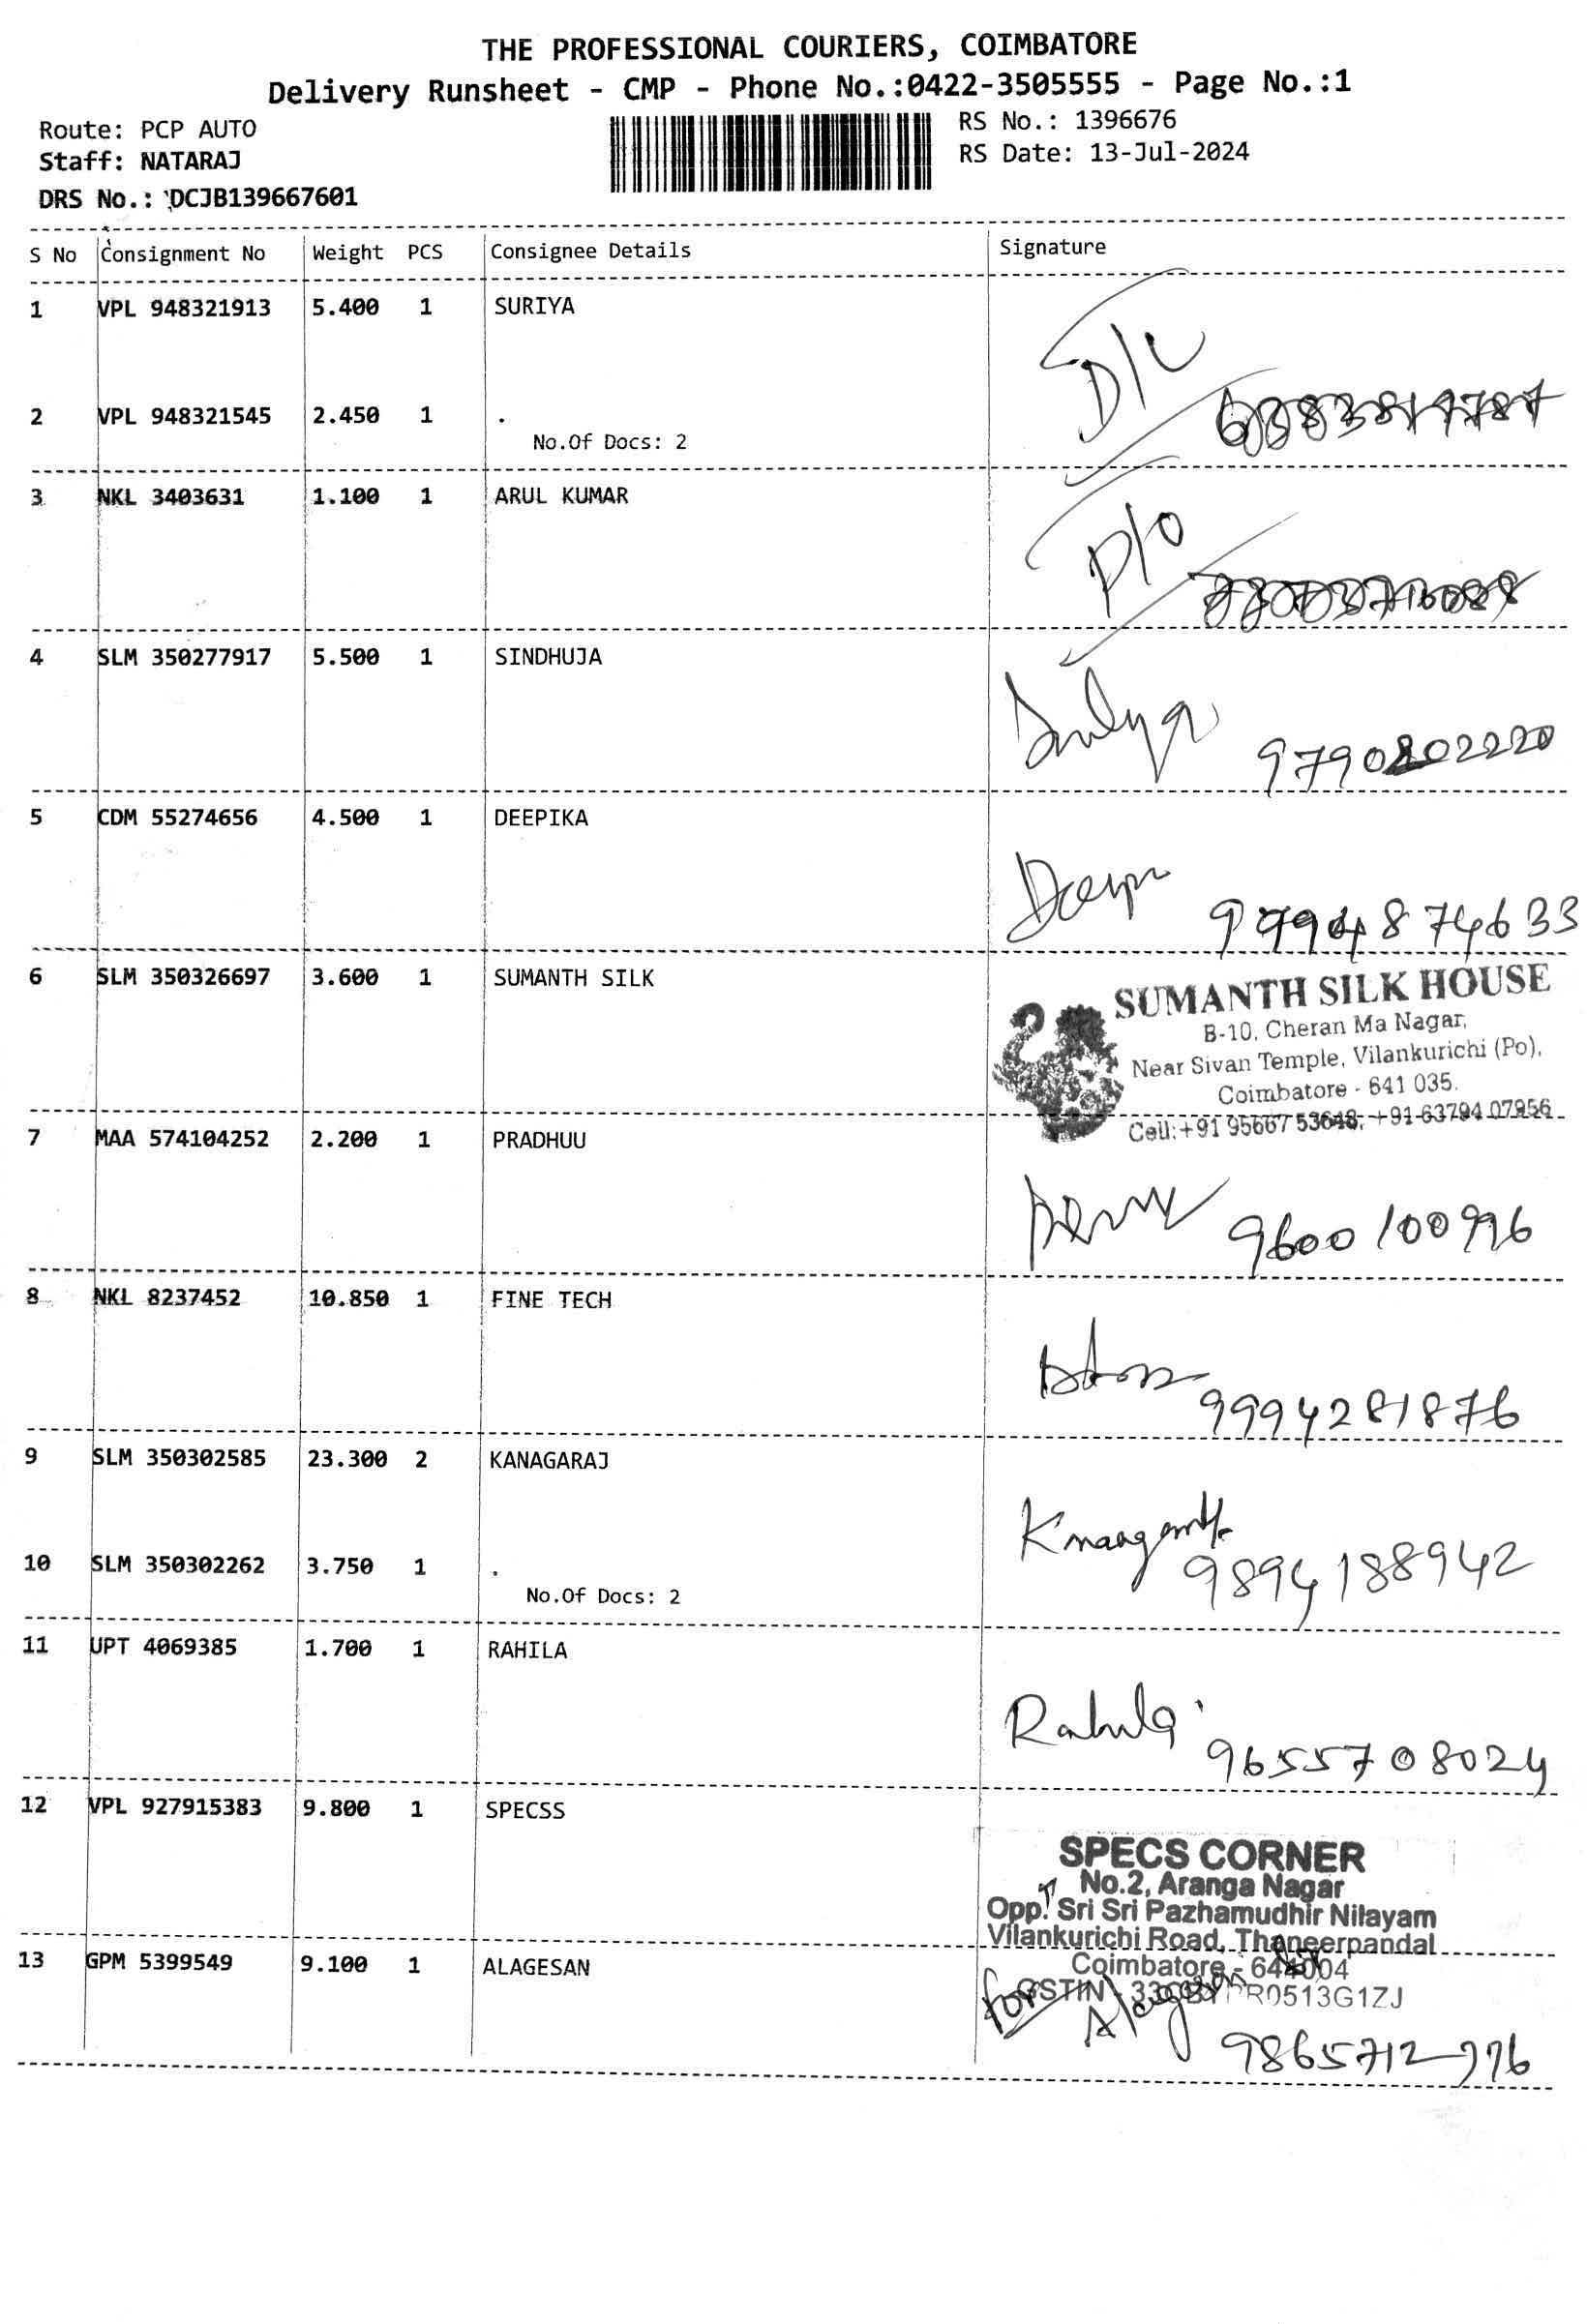 THE PROFESSIONAL COURIERS, COIMBATORE
Delivery Runsheet - CMP - Phone No.:0422-3505555 - Page No.:1
Route: PCP AUTO
Staff: NATARAJ
DRS No.: DCJB139667601
RS No.: 1396676
RS Date: 13-Jul-2024
S No Consignment No Weight PCS Consignee Details Signature
1 VPL 948321913 5.400 1 SURIYA
D/L
2 VPL 948321545 2.450 1 .
No.Of Docs: 2
3 NKL 3403631 1.100 1 ARUL KUMAR
P/O
4 SLM 350277917 5.500 1 SINDHUJA
5 CDM 55274656 4.500 1 DEEPIKA
6 SLM 350326697 3.600 1 SUMANTH SILK
SUMANTH SILK HOUSE
B-10, Cheran Ma Nagar,
Near Sivan Temple, Vilankurichi (Po),
Coimbatore - 641 035.
Cell:+91 95667 53648, +91-63794 07956
7 MAA 574104252 2.200 1 PRADHUU
9600100996
8 NKL 8237452 10.850 1 FINE TECH
9994281876
9 SLM 350302585 23.300 2 KANAGARAJ
10 SLM 350302262 3.750 1 .
9894188942
No.Of Docs: 2
11 UPT 4069385 1.700 1 RAHILA
Rahila
9655708024
12 VPL 927915383 9.800 1 SPECSS
SPECS CORNER
No.2, Aranga Nagar
Opp. Sri Sri Pazhamudhir Nilayam
Vilankurichi Road, Thaneerpandal
13 GPM 5399549 9.100 1 ALAGESAN
Coimbatore - 641004
GSTIN
for Alagesan